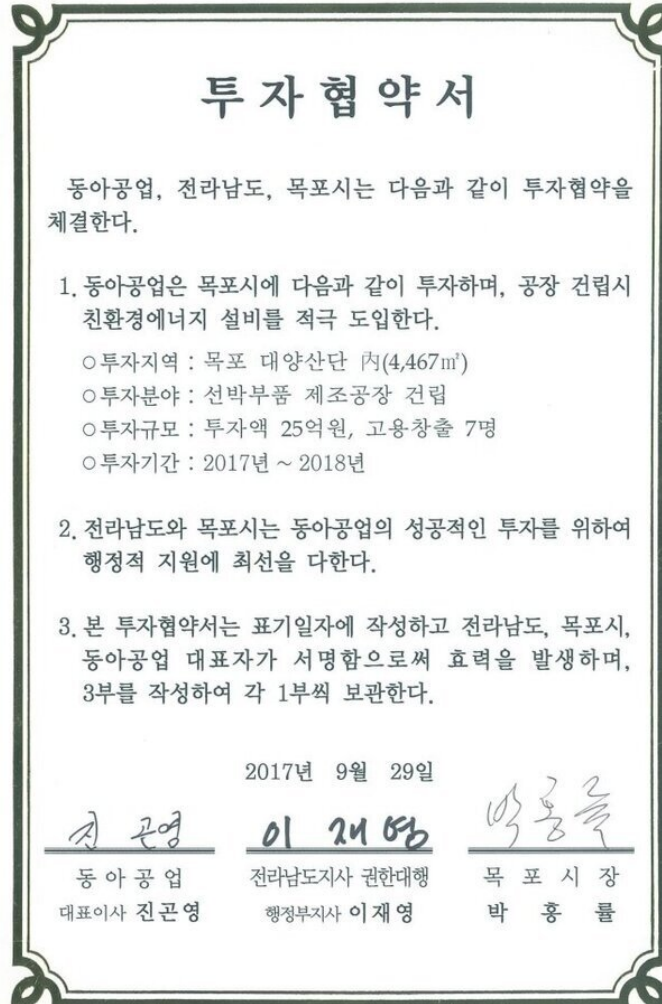 투자협약서
동아공업, 전라남도, 목포시는 다음과 같이 투자협약을
체결한다.
1. 동아공업은 목포시에 다음과 같이 투자하며, 공장 건립시
친환경에너지 설비를 적극 도입한다.
○투자지역 : 목포 대양산단 內(4,467㎡)
○투자분야 : 선박부품 제조공장 건립
○투자규모 : 투자액 25억원, 고용창출 7명
○투자기간 : 2017년 ~ 2018년
2. 전라남도와 목포시는 동아공업의 성공적인 투자를 위하여
행정적 지원에 최선을 다한다.
3. 본 투자협약서는 표기일자에 작성하고 전라남도, 목포시,
동아공업 대표자가 서명함으로써 효력을 발생하며,
3부를 작성하여 각 1부씩 보관한다.
2017년 9월 29일
진곤영 이재영 박홍률
동아공업 전라남도지사 권한대행 목포시장
대표이사 진곤영 행정부지사 이재영 박홍률